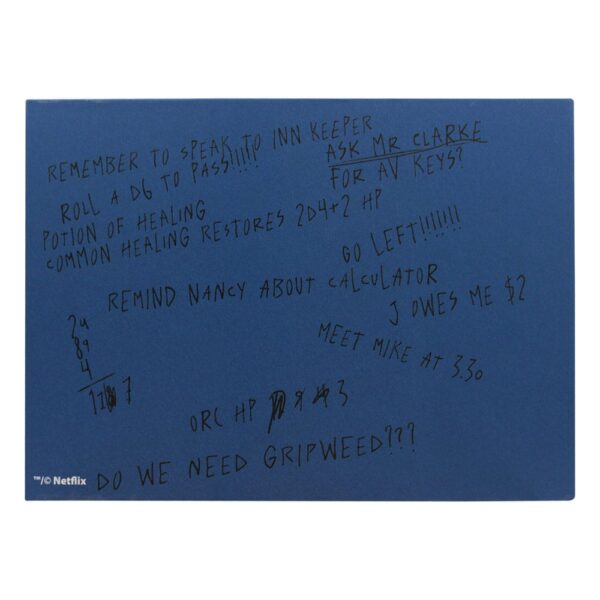 REMEMBER TO SPEAK TO INN KEEPER
ROLL A D6 TO PASS!!!!!
ASK MR CLARKE
FOR AV KEYS?
POTION OF HEALING
COMMON HEALING RESTORES 2D4+2 HP
GO LEFT!!!!!!!
REMIND NANCY ABOUT CALCULATOR
J OWES ME $2
MEET MIKE AT 3.30
24
89
4
11 7
ORC HP 3
DO WE NEED GRIPWEED???
™/© Netflix